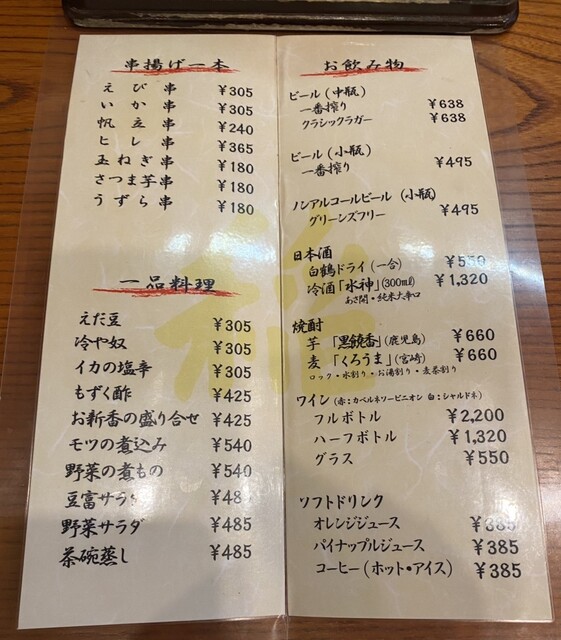 串揚げ一本
えび串 ¥305
いか串 ¥305
帆立串 ¥240
ヒレ串 ¥365
玉ねぎ串 ¥180
さつま芋串 ¥180
うずら串 ¥180
一品料理
えだ豆 ¥305
冷や奴 ¥305
イカの塩辛 ¥305
もずく酢 ¥425
お新香の盛り合せ ¥425
モツの煮込み ¥540
野菜の煮もの ¥540
豆富サラダ
野菜サラダ ¥485
茶碗蒸し ¥485
お飲み物
ビール(中瓶)
一番搾り ¥638
クラシックラガー ¥638
ビール(小瓶)
一番搾り ¥495
ノンアルコールビール(小瓶)
グリーンズフリー ¥495
日本酒
白鶴ドライ(一合) ¥550
冷酒「水神」(300ml) ¥1,320
あさ開・純米大辛口
焼酎
芋「黒鐃香」(鹿児島) ¥660
麦「くろうま」(宮崎) ¥660
ロック・水割り・お湯割り・麦茶割り
ワイン(赤:カベルネソービニオン 白:シャルドネ)
フルボトル ¥2,200
ハーフボトル ¥1,320
グラス ¥550
ソフトドリンク
オレンジジュース ¥385
パイナップルジュース ¥385
コーヒー(ホット・アイス) ¥385